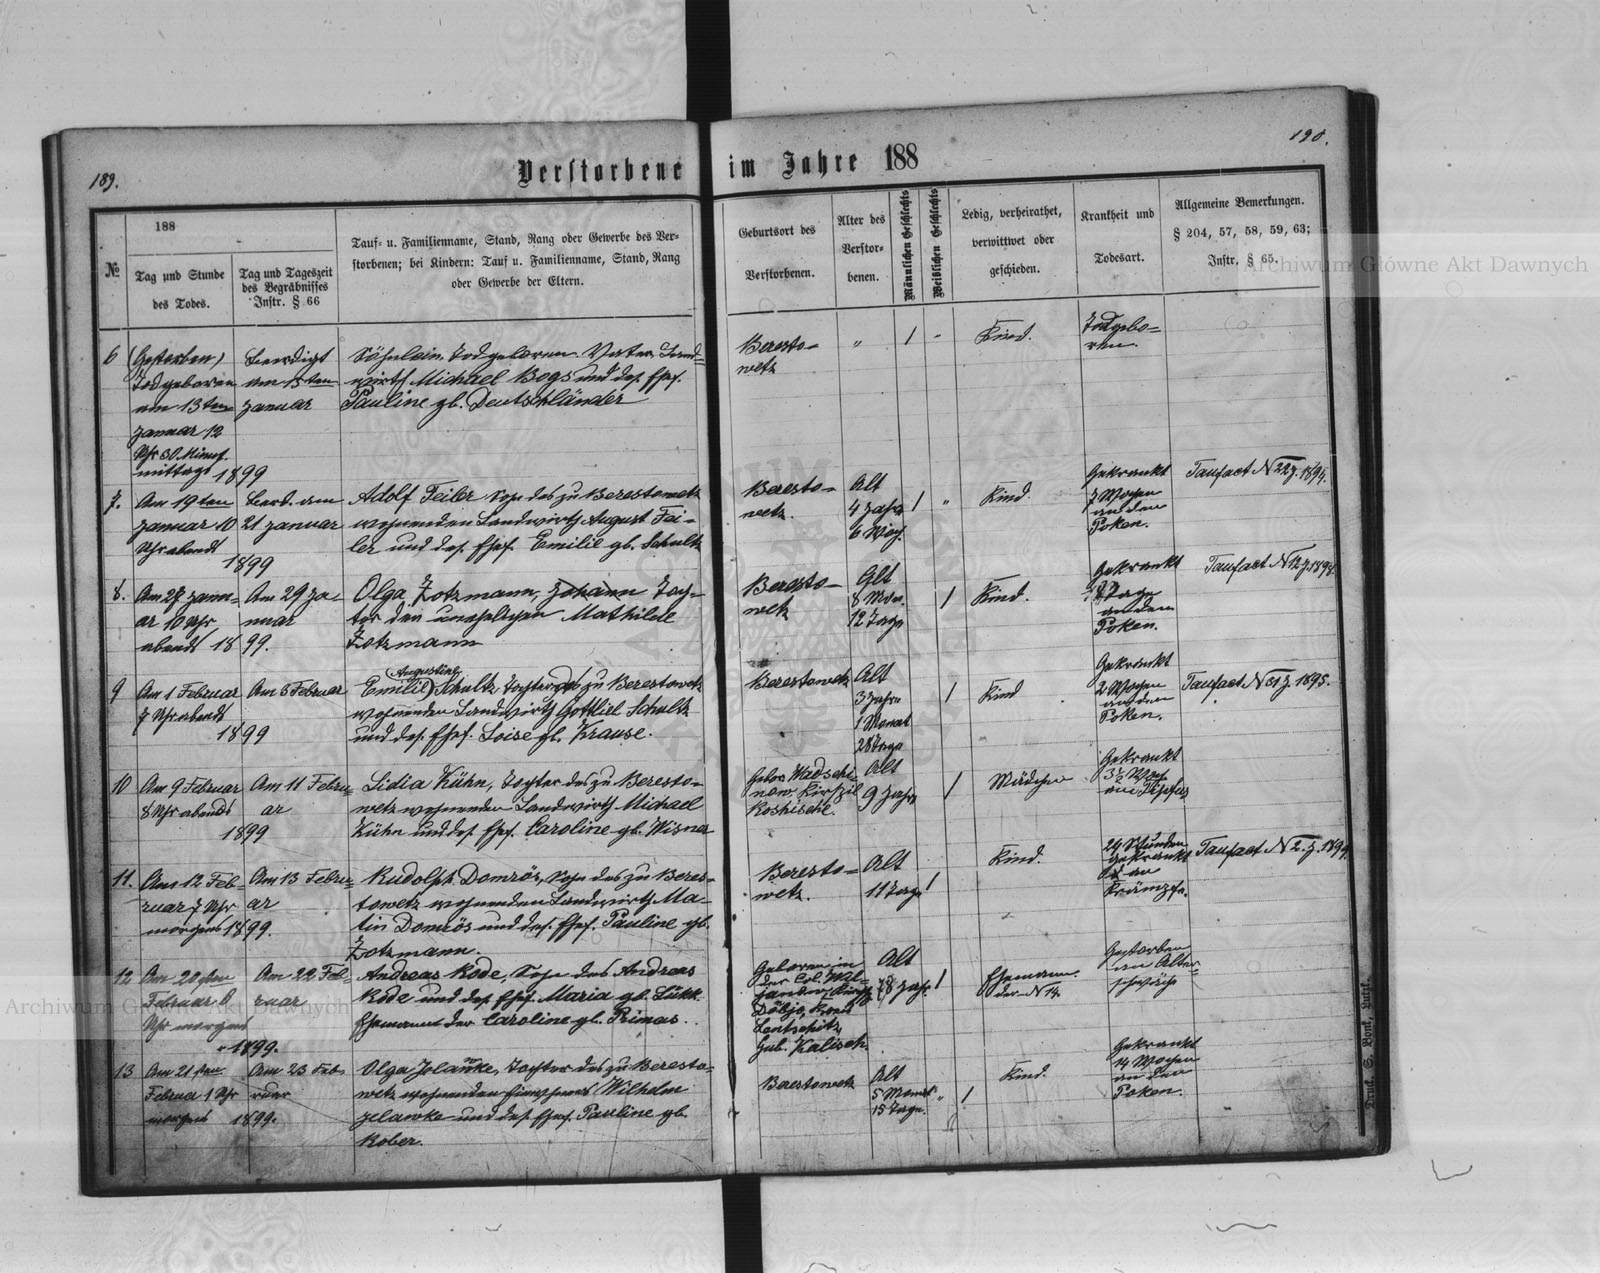 189.
190.
Verstorbene im Jahre 188
№
188
Tag und Stunde
des Todes.
Tag und Tageszeit
des Begräbnisses
Instr. § 66
Tauf- u. Familienname, Stand, Rang oder Gewerbe des Ver-
storbenen; bei Kindern: Tauf u. Familienname, Stand, Rang
oder Gewerbe der Eltern.
Geburtsort des
Verstorbenen.
Alter des
Verstor-
benen.
Männlichen Geschlechts
Weiblichen Geschlechts
Ledig, verheirathet,
verwittwet oder
geschieden.
Krankheit und
Todesart.
Allgemeine Bemerkungen.
§ 204, 57, 58, 59, 63;
Instr. § 65.
6
(Gestorben)
Todgeboren
am 13ten
Januar 12
Uhr 30 Minut.
mittags 1899
Beerdigt
am 15ten
Januar
Söhnlein. Todgeboren. Vater Land-
wirth Michael Bogs und des. Ehef.
Pauline gb. Deutschländer
Beresto-
wetz
"
1
"
Kind.
Todgebo-
ren.
7.
Am 19ten
Januar 10
Uhr abends
1899
Beerd. am
21 Januar
Adolf Feiler Sohn des zu Berestowetz
wohnenden Landwirth August Fei-
ler und des. Ehef. Emilie gb. Schultz
Beresto-
wetz.
Alt
4 Jahre
6 Woch.
1
"
Kind.
Gekrankt
7 Wochen
an den
Poken.
Taufact N 22 J. 1894.
8.
Am 27 Janu-
ar 10 Uhr
abends 1899.
Am 29 Ja-
nuar
Olga Zotzmann, Johann Toch-
ter der unehelichen Mathilde
Zotzmann
Beresto-
wetz
Alt
8 Mon.
12 Tage
1
Kind.
Gekrankt
Tage
an den
Poken.
Taufact N 12 J. 1898.
9
Am 1 Februar
7 Uhr abends
1899
Am 5 Februar
Augustine
Emilie Schultz, Tochter des zu Berestowetz
wohnenden Landwirth Gottlieb Schultz
und des. Ehef. Loise gb. Krause.
Berestowetz
Alt
3 Jahre
1 Monat
28 Tage
1
Kind
Gekrankt
2 Wochen
an den
Poken.
Taufact N 31 J. 1895.
10
Am 9 Februar
8 Uhr abends
1899
Am 11 Febru-
ar
Lidia Kühn, Tochter des zu Beresto-
wetz wohnenden Landwirth Michael
Kühn und des Ehef. Caroline gb. Wisner
Gebor. Wadschi-
now Kirspil
Roshische.
Alt
9 Jahre
1
Mädchen
Gekrankt
3½ Woch
am Tiphus
11.
Am 12 Feb-
ruar 7 Uhr
morgens 1899.
Am 13 Febru-
ar
Rudolph Domrös, Sohn des zu Beres-
towetz wohnenden Landwirth Ma-
tin Domrös und des. Ehef. Pauline gb.
Zotzmann.
Beresto-
wetz.
Alt
11 Tage
1
Kind.
24 Stunden
gekrankt
an
Krämpfe.
Taufact N 2. J. 1899.
12
Am 20ten
Februar 6
Uhr morgens
1899.
Am 22 Feb-
ruar
Andreas Rode, Sohn des Andreas
Rode und des Ehef. Maria gb. Lükk.
Ehemann der Caroline gb. Primas.
Geboren in
der Col.
Lentschitz
Gub. Kalisch.
Alt
78 Jahr.
1
Ehemann.
der N 14.
Gestorben
an Alter-
schwäche
13
Am 21ten
Februar 1 Uhr
morgens 1899.
Am 23 Feb-
ruar
Olga Jelanke, Tochter des zu Beresto-
wetz wohnenden Einwohners Wilhelm
Jelanke und des. Ehef. Pauline gb.
Kober.
Berestowetz
Alt
5 Monat
15 Tage.
"
1
Kind.
Gekrankt
4 Wochen
an den
Poken.
Druk. S. Bonk, Luck.
Archiwum Główne Akt Dawnych
Archiwum Główne Akt Dawnych